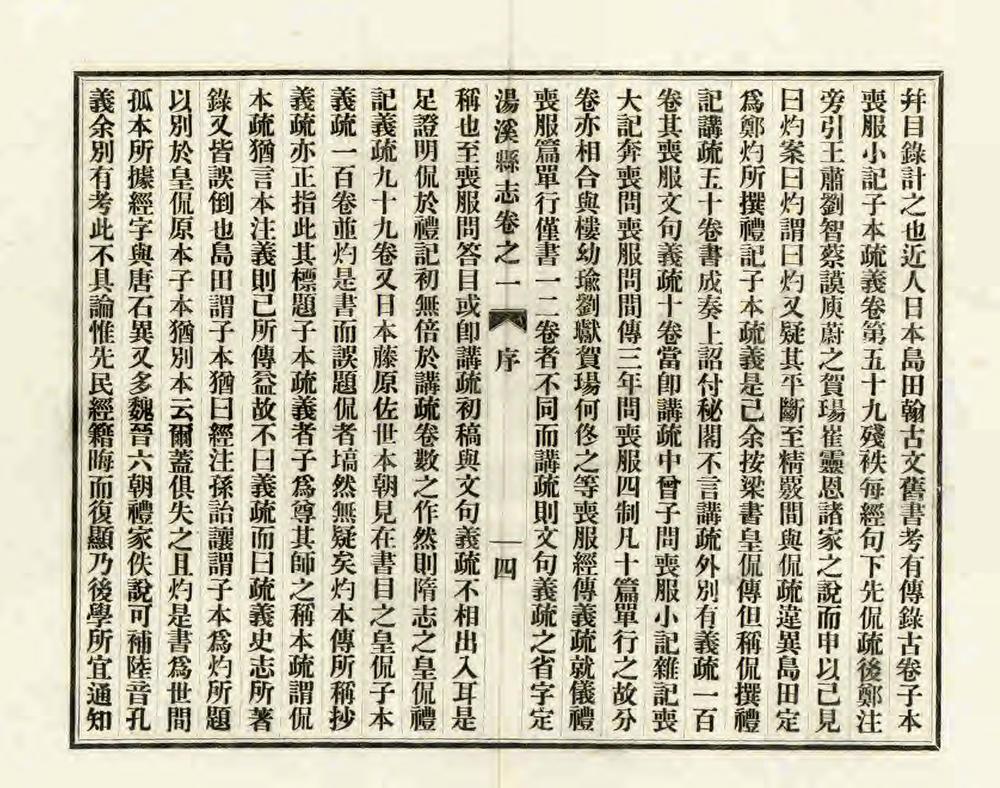 幷目錄計之也近人日本島田翰古文舊書考有傳錄古卷子本
喪服小記子本疏義卷第五十九殘袟每經句下先侃疏後鄭注
旁引王肅劉智蔡謨庾蔚之賀瑒崔靈恩諸家之說而申以己見
曰灼案曰灼謂曰灼又疑其平斷至精覈間與侃疏違異島田定
爲鄭灼所撰禮記子本疏義是已余按梁書皇侃傳但稱侃撰禮
記講疏五十卷書成奏上詔付秘閣不言講疏外別有義疏一百
卷其喪服文句義疏十卷當卽講疏中曾子問喪服小記雜記喪
大記奔喪問喪服問間傳三年問喪服四制凡十篇單行之故分
卷亦相合與樓幼瑜劉瓛賀瑒何佟之等喪服經傳義疏就儀禮
喪服篇單行僅書一二卷者不同而講疏則文句義疏之省字定
湯溪縣志卷之一 序 四
稱也至喪服問答目或卽講疏初稿與文句義疏不相出入耳是
足證明侃於禮記初無倍於講疏卷數之作然則隋志之皇侃禮
記義疏九十九卷又日本藤原佐世本朝見在書目之皇侃子本
義疏一百卷並灼是書而誤題侃者塙然無疑矣灼本傳所稱抄
義疏亦正指此其標題子本疏義者子爲尊其師之稱本疏謂侃
本疏猶言本注義則己所傳益故不曰義疏而曰疏義史志所著
錄又皆誤倒也島田謂子本猶曰經注孫詒讓謂子本爲灼所題
以別於皇侃原本子本猶別本云爾蓋俱失之且灼是書爲世間
孤本所據經字與唐石異又多魏晉六朝禮家佚說可補陸音孔
義余別有考此不具論惟先民經籍晦而復顯乃後學所宜通知